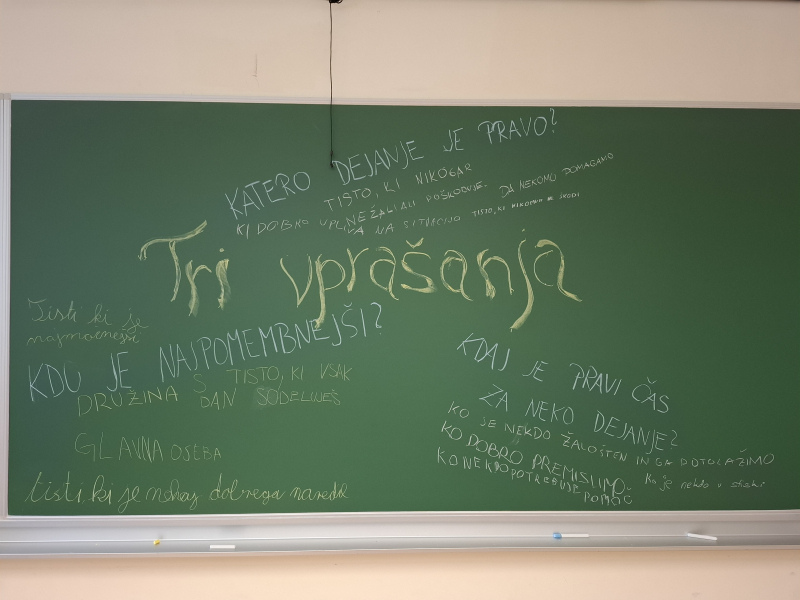 KATERO DEJANJE JE PRAVO?
TISTO, KI NIKOGAR
NE ŽALI ALI POŠKODUJE.
DA NEKOMU POMAGAMO
KI DOBRO UPLIVA NA SITUACIJO
TISTO, KI NIKOMUR NE ŠKODI
Tri vprašanja
Tisti ki je
najmočnejši
KDO JE NAJPOMEMBNEJŠI?
DRUŽINA
S TISTO, KI VSAK
DAN SODELUJEŠ
GLAVNA OSEBA
tisti ki je nekaj dobrega naredil
KDAJ JE PRAVI ČAS
ZA NEKO DEJANJE?
KO JE NEKDO ŽALOSTEN IN GA POTOLAŽIMO
KO DOBRO PREMISLIMO
KO NEKDO POTREBUJE
POMOČ
Ko je nekdo v stiski